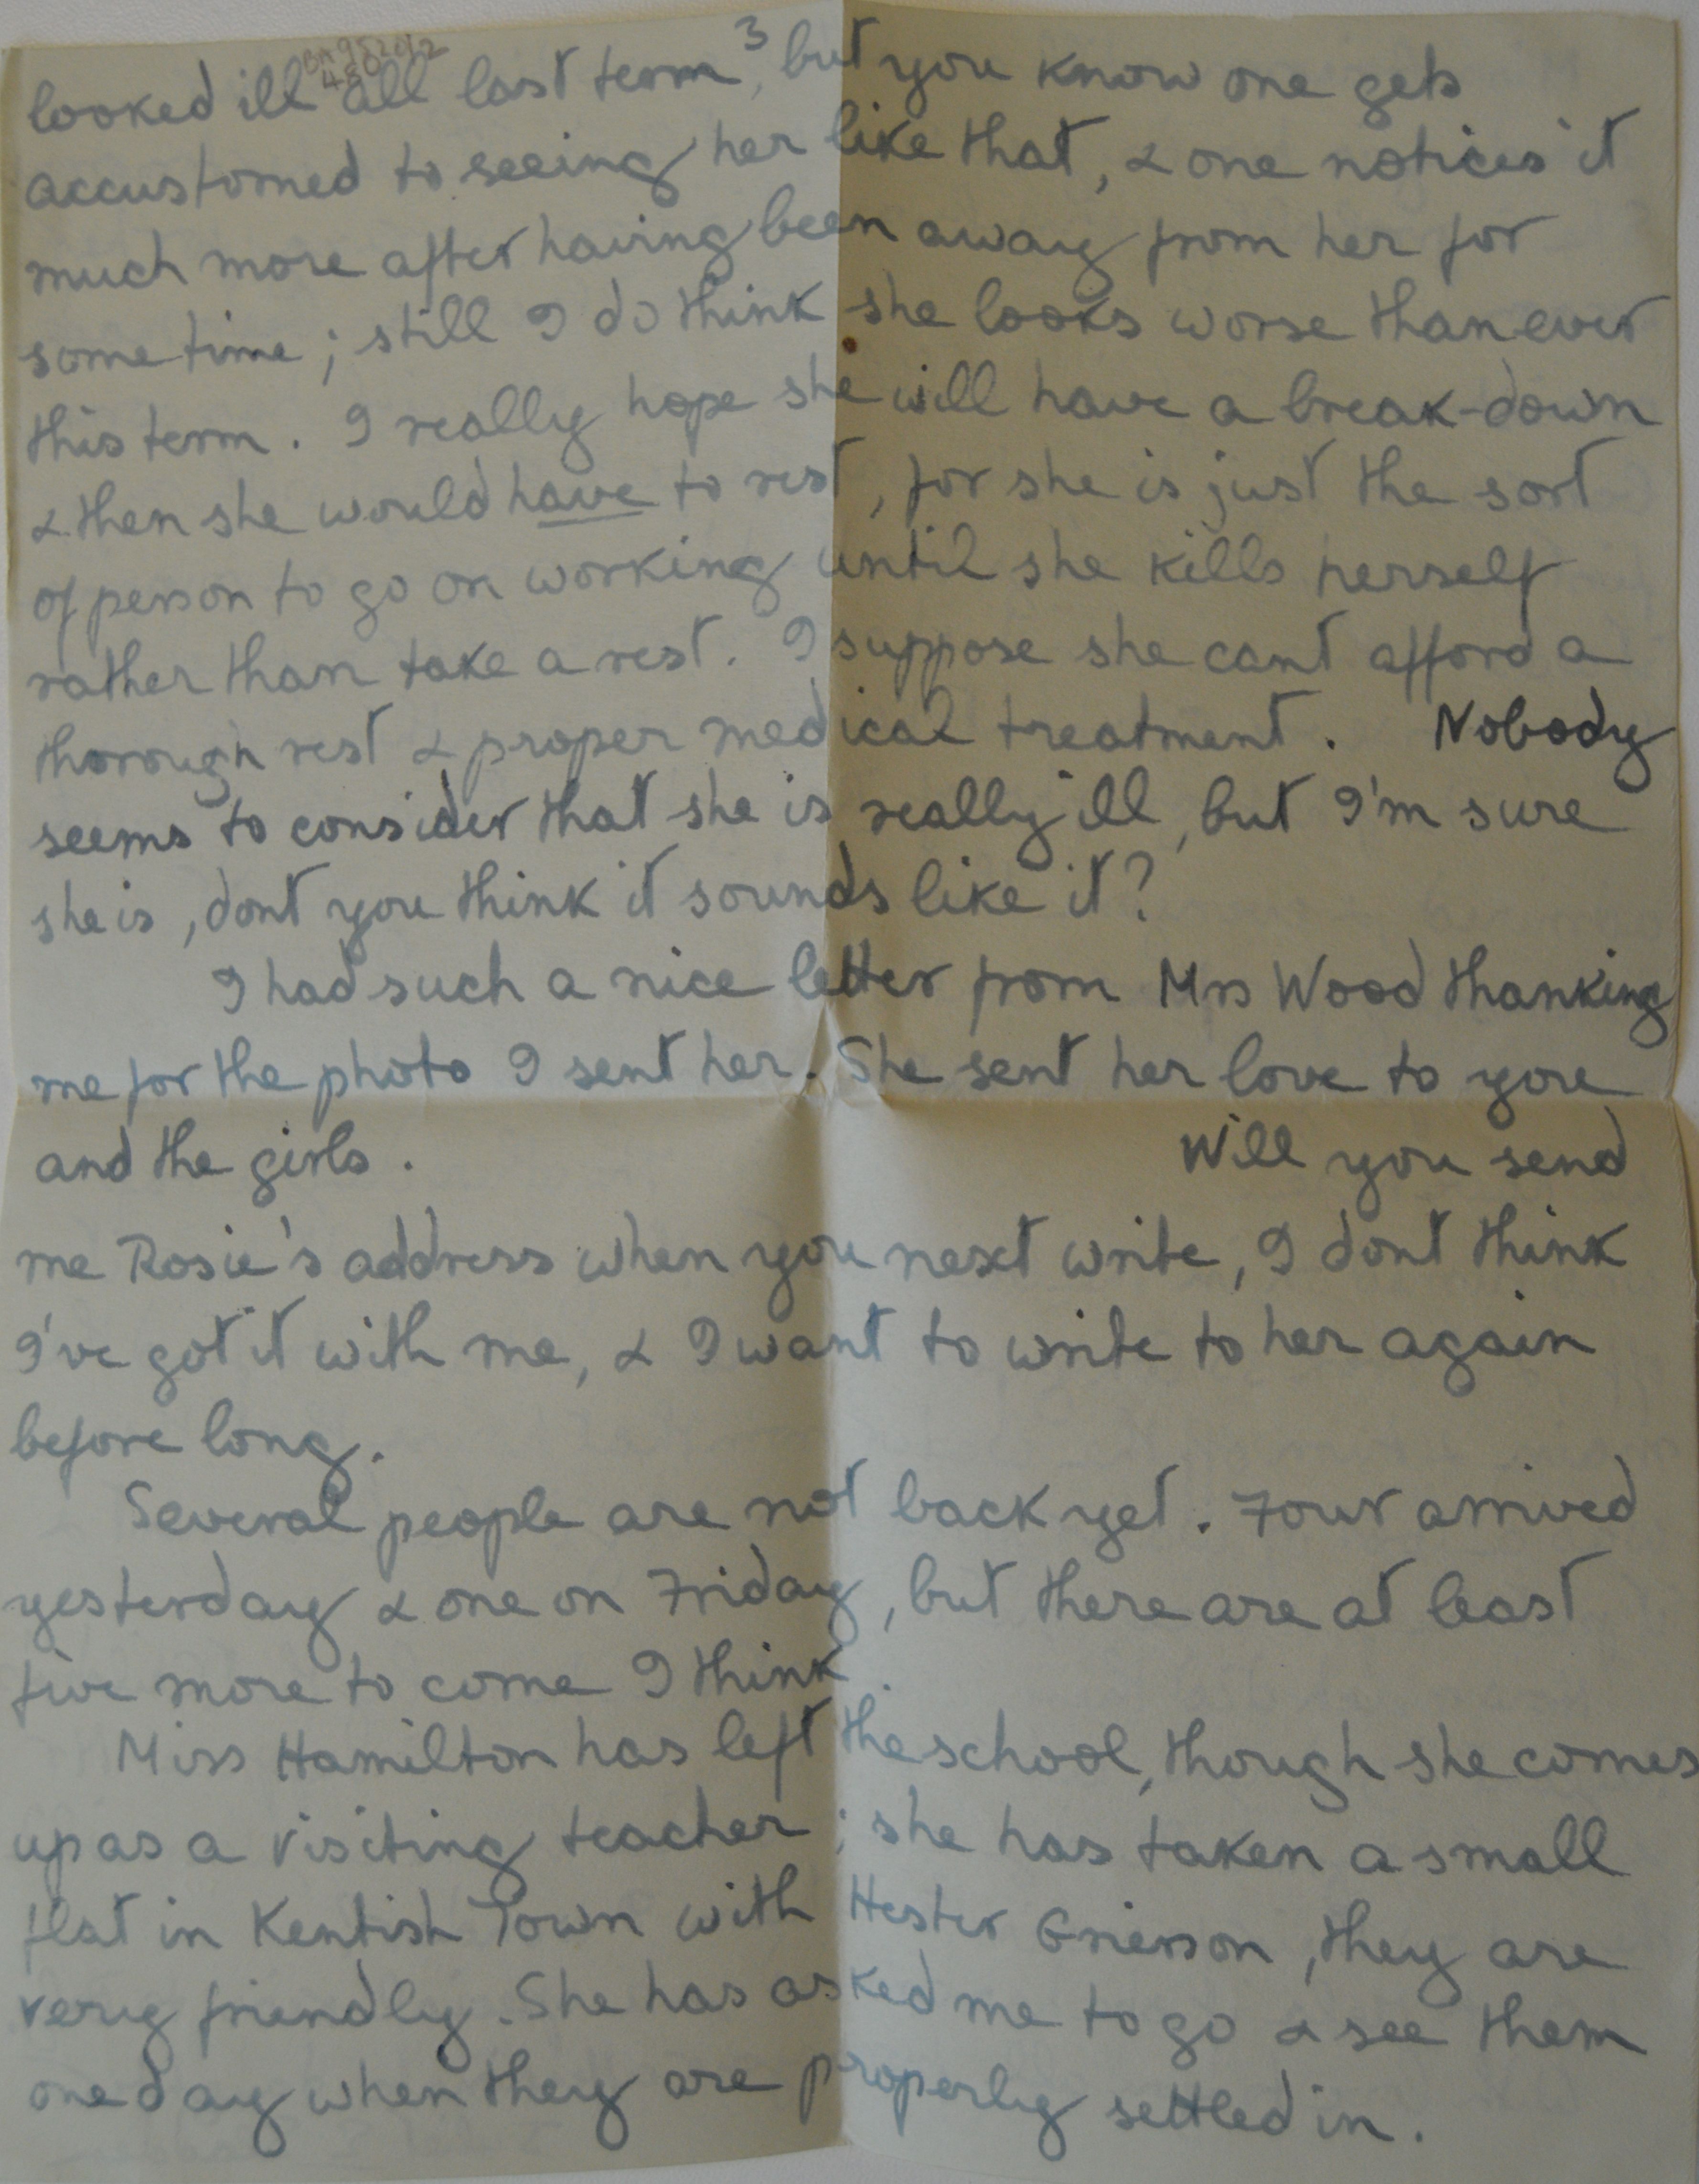 3
looked ill all last term, but you know one gets
accustomed to seeing her like that, & one notices it
much more after having been away from her for
some time; still I do think she looks worse than ever
this term. I really hope she will have a break-down
& then she would have to rest, for she is just the sort
of person to go on working until she kills herself
rather than take a rest. I suppose she cant afford a
thorough rest & proper medical treatment. Nobody
seems to consider that she is really ill, but I'm sure
she is, dont you think it sounds like it?
I had such a nice letter from Mrs Wood thanking
me for the photo I sent her. She sent her love to you
and the girls. Will you send
me Rosie's address when you next write, I dont think
I've got it with me, & I want to write to her again
before long.
Several people are not back yet. Four arrived
yesterday & one on Friday, but there are at least
five more to come I think.
Miss Hamilton has left the school, though she comes
up as a visiting teacher; she has taken a small
flat in Kentish Town with Hester Grierson, they are
very friendly. She has asked me to go & see them
one day when they are properly settled in.